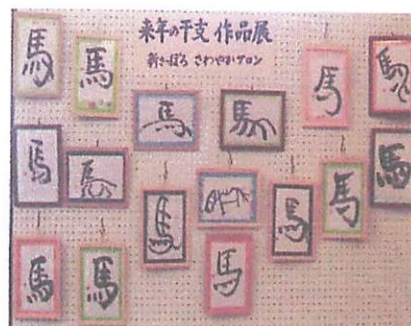 来年の干支 作品展
新さっぽろ さわやかサロン
馬
馬
馬
馬
馬
馬
馬
馬
馬
馬
馬
馬
馬
馬
馬